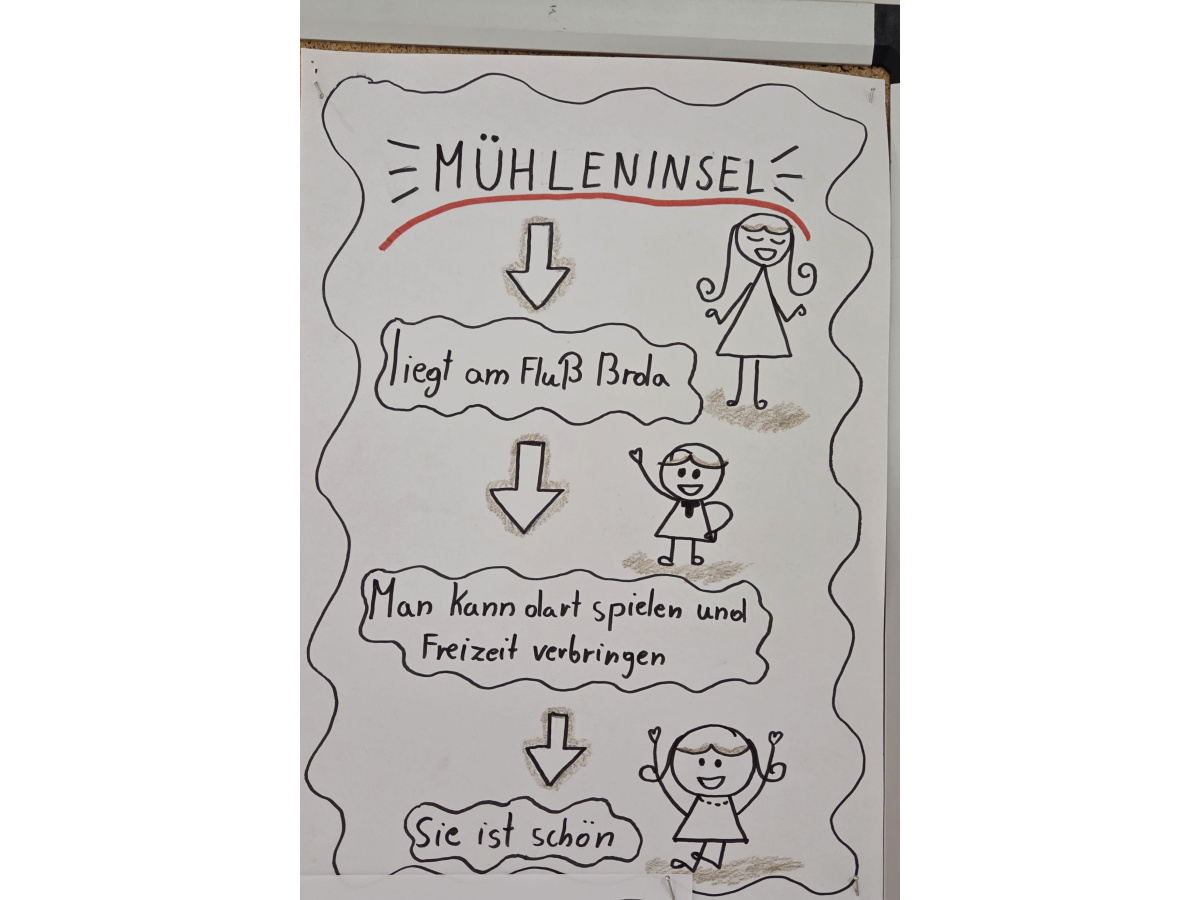 MÜHLENINSEL
liegt am Fluß Brda
Man kann dart spielen und
Freizeit verbringen
Sie ist schön